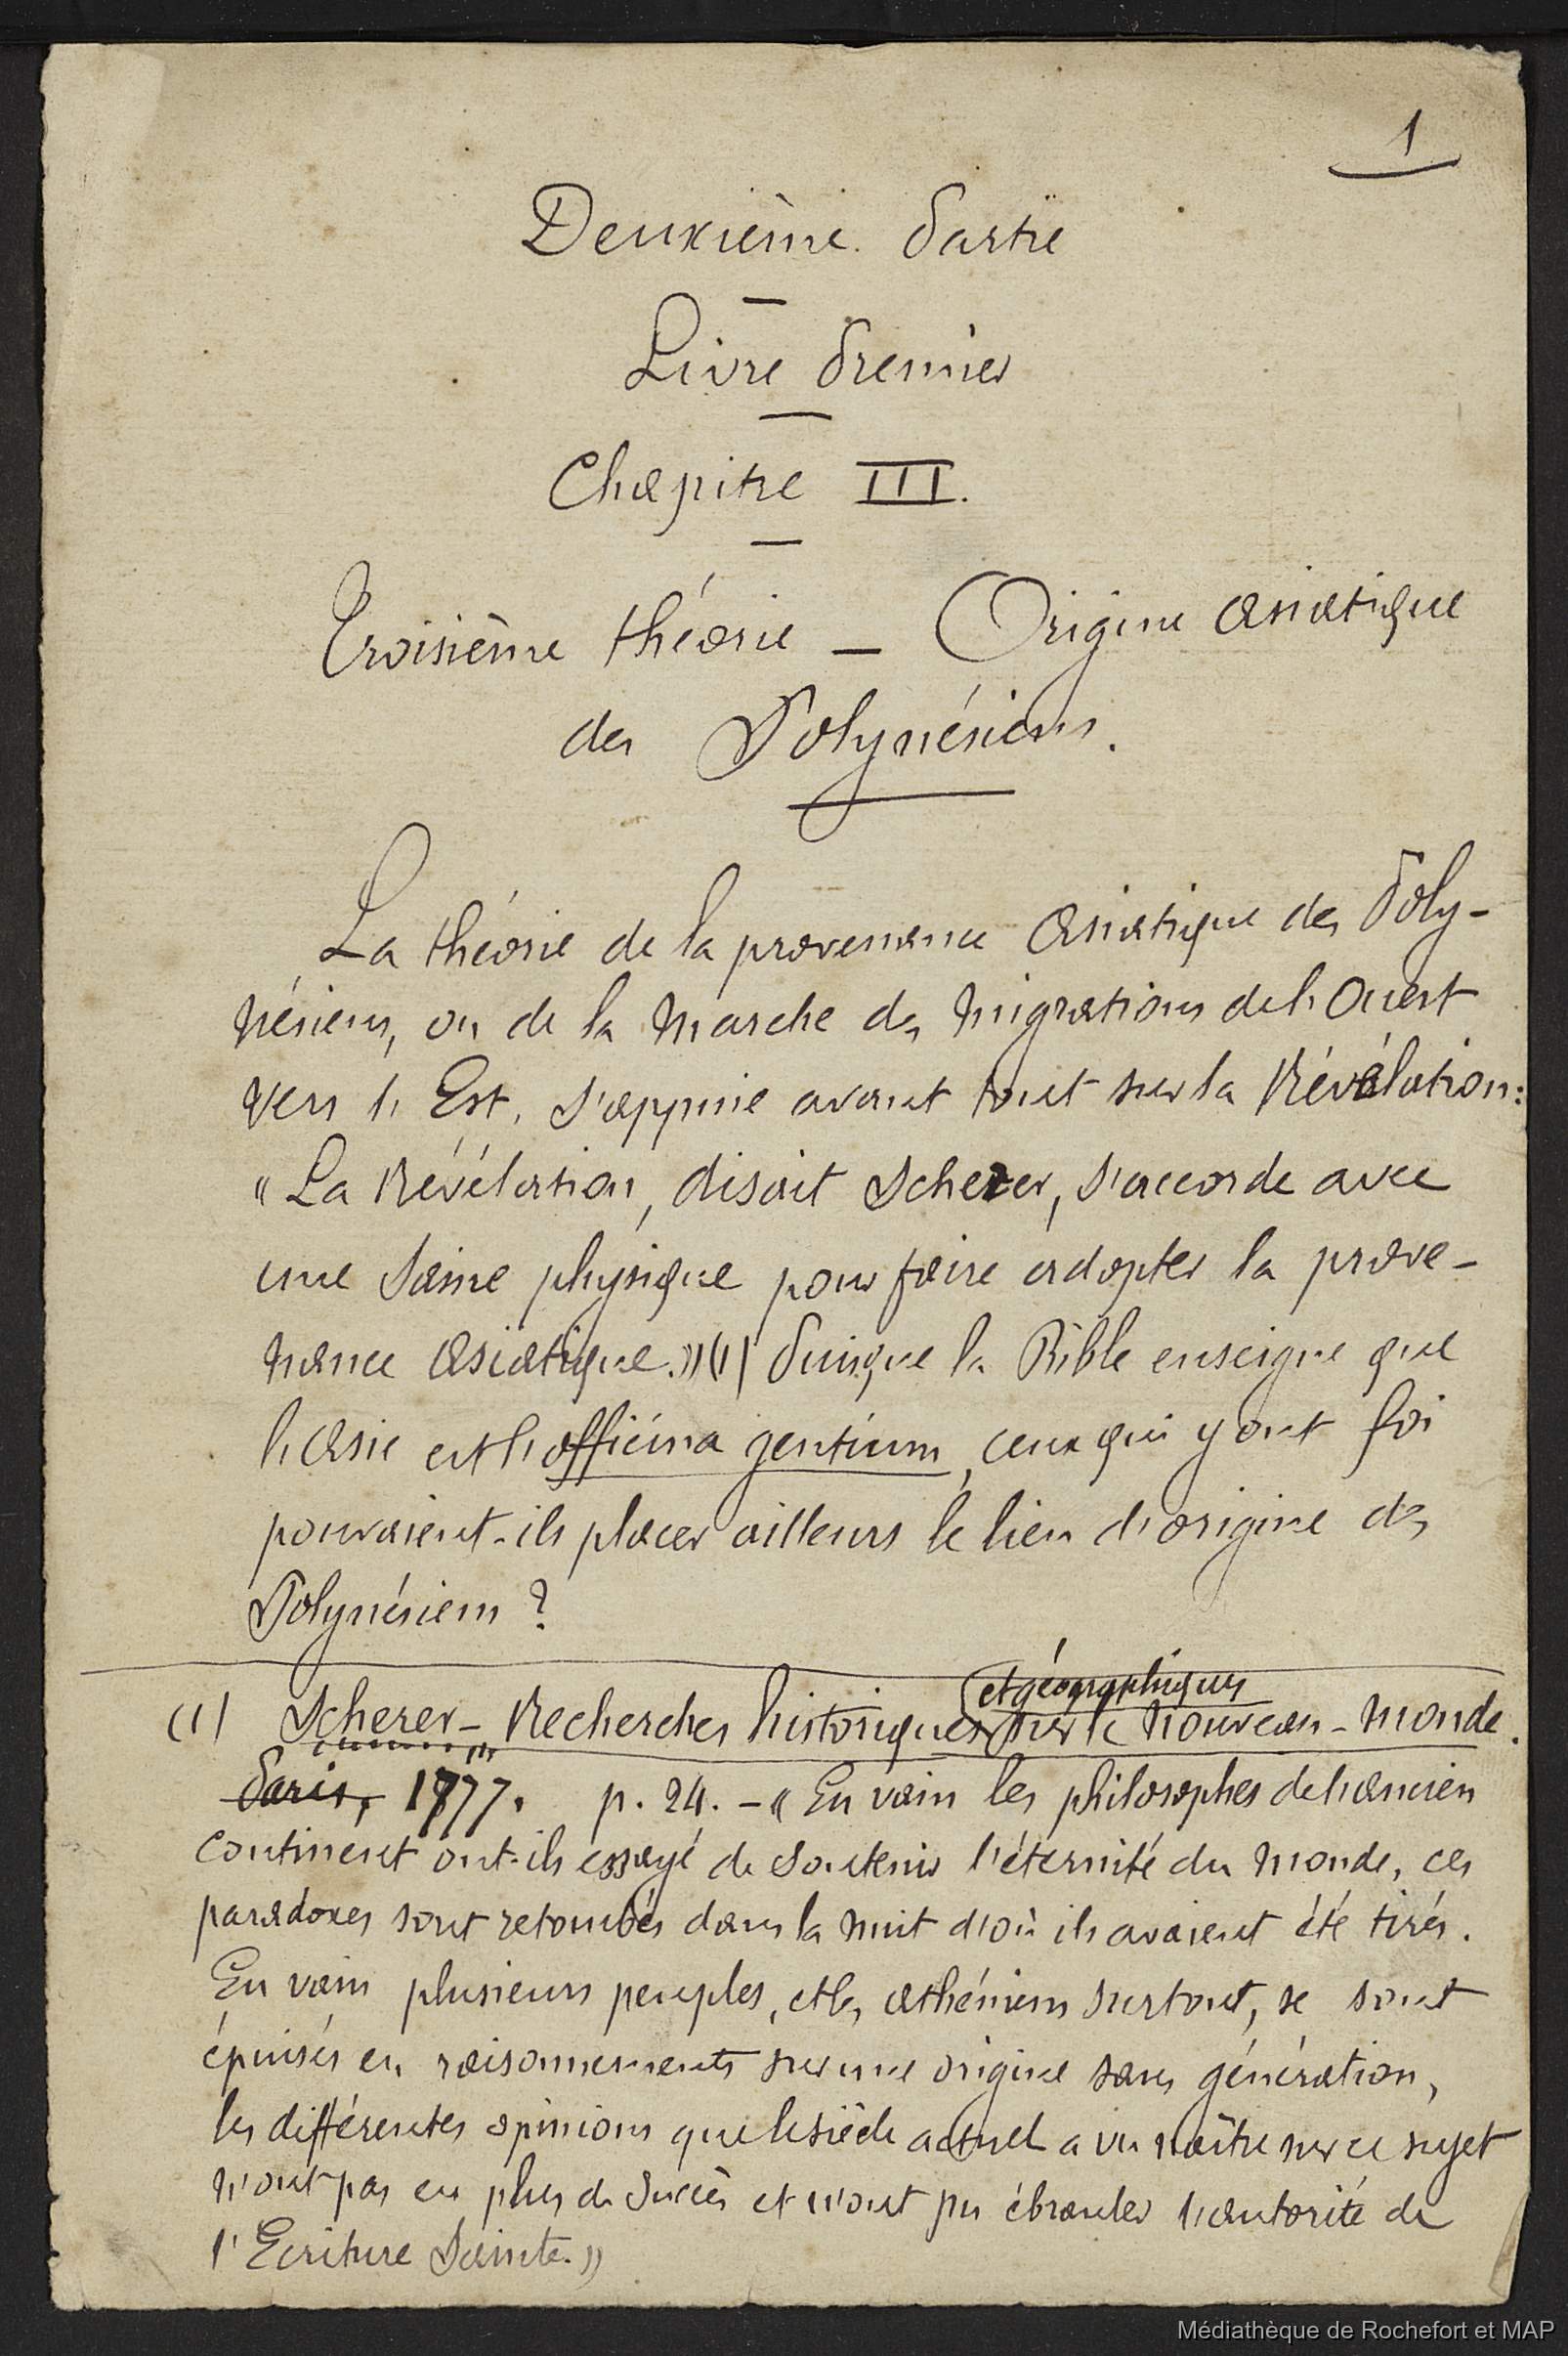 1
Deuxième Partie
Livre Premier
Chapitre III.
Troisième théorie — Origine asiatique
des Polynésiens.
La théorie de la provenance asiatique des Poly-
nésiens, ou de la marche des migrations de l'Ouest
vers l'Est, s'appuie avant tout sur la Révélation:
"La Révélation, disait Scherer, s'accorde avec
une saine physique pour faire adopter la prove-
nance asiatique.» (1) Puisque la Bible enseigne que
l'asie est l'officina gentium, ceux qui y ont foi
pouvaient-ils placer ailleurs le lieu d'origine des
Polynésiens ?
et géographiques
(1) Scherer — Recherches historiques sur le nouveau-monde.
Paris, 1777. p. 24. - « En vain les philosophes de l'ancien
continent ont-ils essayé de soutenir l'éternité du monde, ces
paradoxes sont retombés dans la nuit d'où ils avaient été tirés.
En vain plusieurs peuples, et les athéniens surtout, se sont
épuisés en raisonnements sur une origine sans génération,
les différentes opinions que le siècle actuel a vu naître sur ce sujet
n'ont pas eu plus de succès et n'ont pu ébranler l'autorité de
l'Ecriture Sainte. »
Médiathèque de Rochefort et MAP